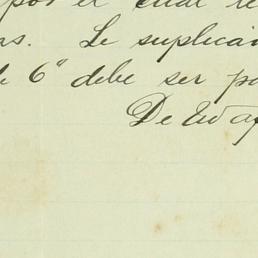 por el cual re
as. Le suplican
de 6" debe ser po
De Ud af